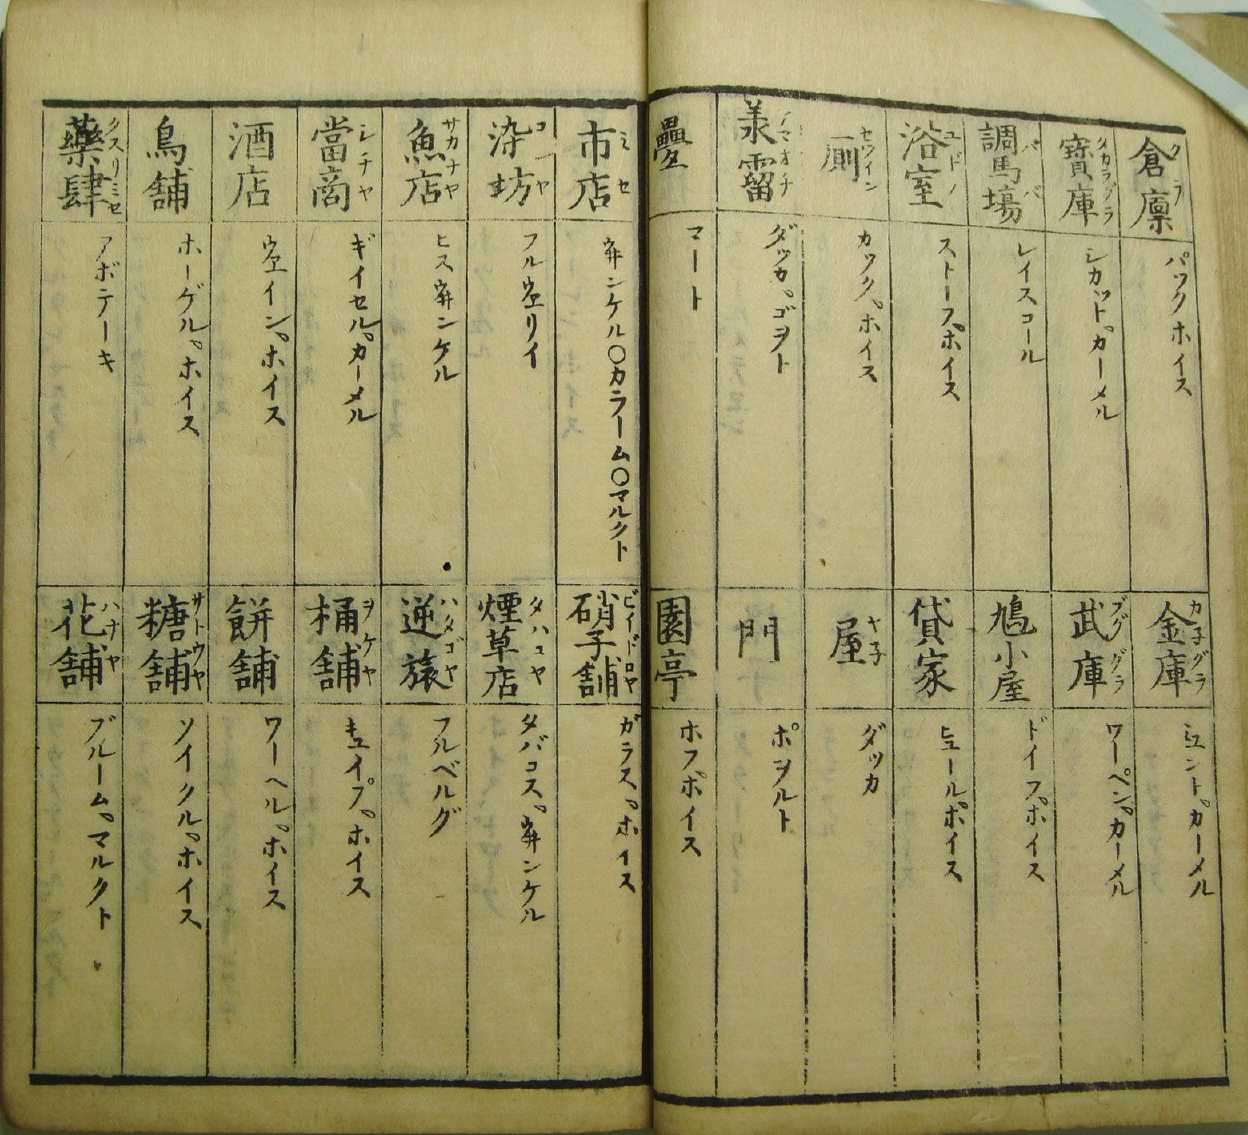 倉廩 クラ
パックホイス
寶庫 タカラグラ
シカット゜カーメル
調馬場 ババ
レイスコール
浴室 ユドノ
ストーフ゜ホイス
厠 セツイン
カックホイス
霤
ダッカ゜ゴヲト
マート
金庫 カ子グラ
ミュント゜カーメル
武庫 ブググラ
ワーペン゜カーメル
鳩小屋
ドイフ゜ホイス
貸家
ヒュールホイス
屋 ヤ子
ダッカ
門
ポヲルト
園亭
ホフホイス
市店 ミセ
ウ井ンケル〇カラーム〇マルクト
染坊 コーヤ
フルウエリイ
魚店 サカナヤ
ヒスウ井ンケル
當商 シチヤ
ギイセル゜カーメル
酒店
ウエイン゜ホイス
鳥舗
ホーゲル゜ホイス
藥肆 クスリミセ
アボテーキ
硝子舗 ビイドロヤ
ガラス゜ホイス
煙草店 タハコヤ
タバコス゜ウ井ンケル
逆旅 ハタゴヤ
フルベルグ
桶舗 ヲケヤ
キュイプ゜ホイス
餅舗
ワーヘル゜ホイス
糖舗 サトウヤ
ソイクル゜ホイス
花舗 ハナヤ
ブルーム゜マルクト